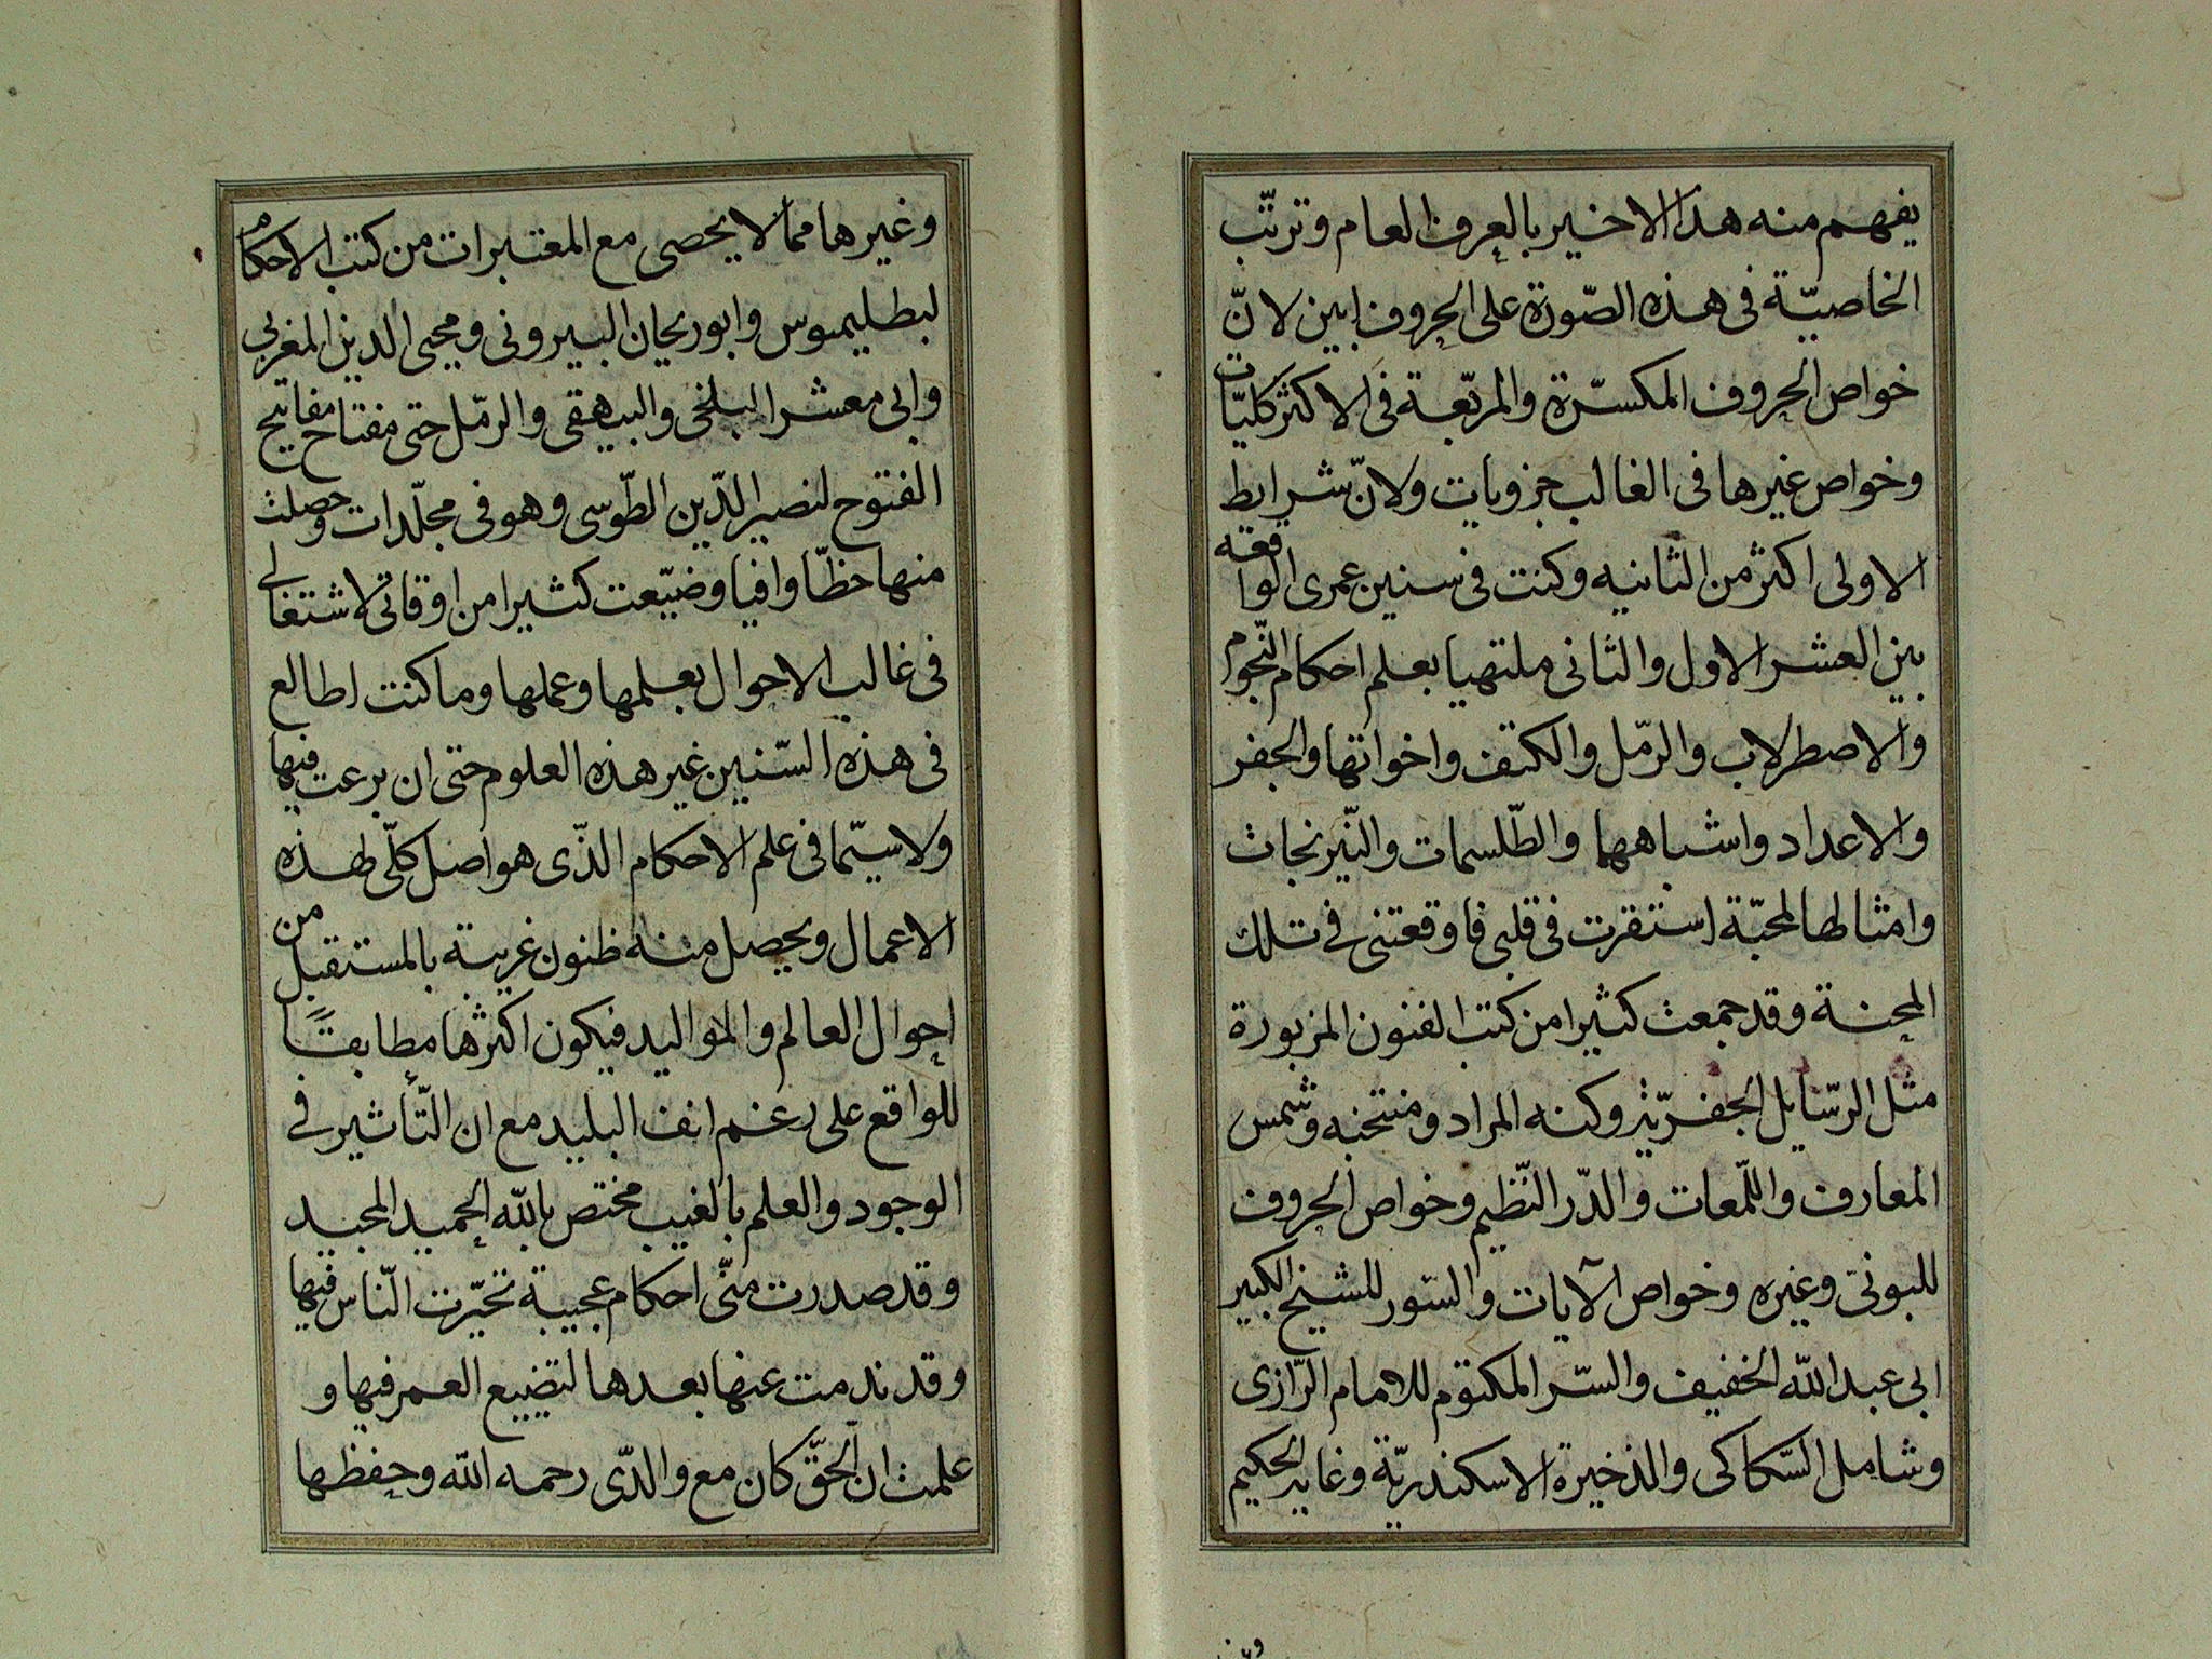 يفهم منه هذا الاخير بالعرف العام وترتّب
الخاصيّة فى هذه الصّورة على الحروف ابين لانّ
خواص الحروف المكسّرة والمربّعة فى الاكثر كليّات
وخواص غيرها فى الغالب جزويات ولانّ شرايط
الاولى اكثر من الثانيه وكنت فى سنين عمرى الواقعه
بين العشر الاول والثانى ملتهيا بعلم احكام النّجوم
والاصطرلاب والرّمل والكتف واخواتها والجفر
والاعداد واشباهها والطّلسمات والنّيرنجات
وامثالها لمحبّة استقرت فى قلبى فاوقعتنى فى تلك
المحنة وقد جمعت كثيرا من كتب الفنون المزبورة
مثل الرّسايل الجفريّة وكنه المراد ومنتخبه وشمس
المعارف واللّمعات والدّر النّظيم وخواص الحروف
للبونى وغيره وخواص الآيات والسّور للشيخ الكبير
ابى عبد اللّه الخفيف والسّر المكتوم للامام الرّازى
وشامل السّكاكى والذخيرة الاسكندريّة وغاية الحكيم
وغيرها مما لا يحصى مع المعتبرات من كتب الاحكام
لبطليموس وابوريحان البيرونى ومحيى الدين المغربى
وابى معشر البلخى والبيهقى والرمّل حتى مفتاح مفاتيح
الفتوح لنصير الدّين الطّوسى وهو فى مجلّدات وحصلت
منها حظّا وافيا وضيّعت كثيرا من اوقاتى لاشتغالى
فى غالب الاحوال بعلمها وعملها وما كنت اطالع
فى هذه السّنين غير هذه العلوم حتى ان برعت فيها
ولا سيّما فى علم الاحكام الذّى هو اصل كلّى لهذه
الاعمال ويحصل منه ظنون غريبة بالمستقبل من
احوال العالم والمواليد فيكون اكثرها مطابقاً
للواقع على رغم انف البليد مع ان التّأثير فى
الوجود والعلم بالغيب مختص باللّه الحميد المجيد
وقد صدرت منّى احكام عجيبة تحيّرت النّاس فيها
وقد ندمت عنها بعدها لتضييع العمر فيها و
علمت ان الحقّ كان مع والدّى رحمه اللّه وحفظها